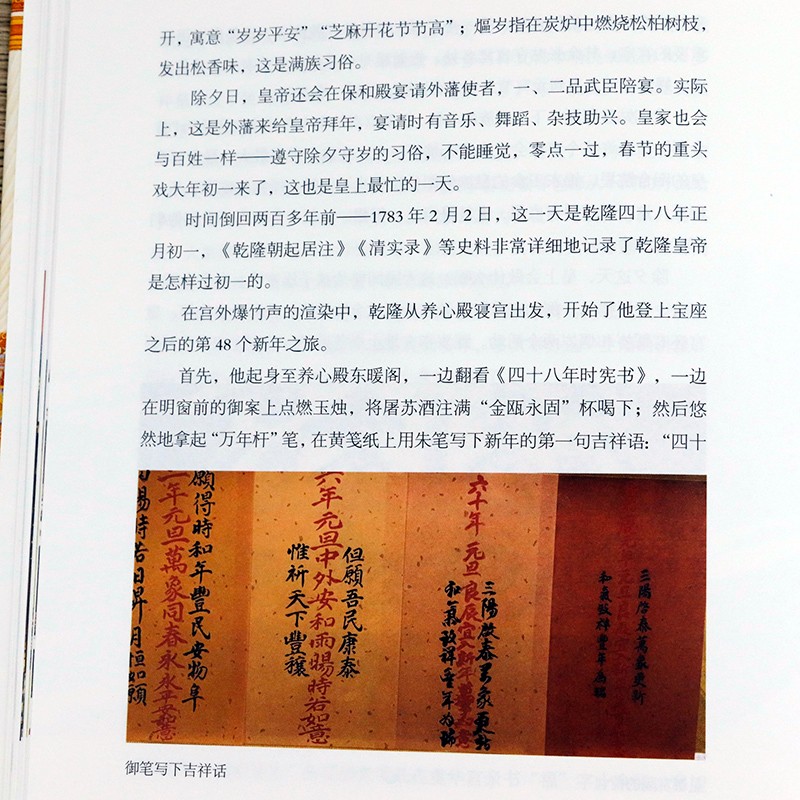 开，寓意“岁岁平安”“芝麻开花节节高”；熰岁指在炭炉中燃烧松柏树枝，
发出松香味，这是满族习俗。
除夕日，皇帝还会在保和殿宴请外藩使者，一、二品武臣陪宴。实际
上，这是外藩来给皇帝拜年，宴请时有音乐、舞蹈、杂技助兴。皇家也会
与百姓一样——遵守除夕守岁的习俗，不能睡觉，零点一过，春节的重头
戏大年初一来了，这也是皇上最忙的一天。
时间倒回两百多年前——1783 年 2 月 2 日，这一天是乾隆四十八年正
月初一，《乾隆朝起居注》《清实录》等史料非常详细地记录了乾隆皇帝
是怎样过初一的。
在宫外爆竹声的渲染中，乾隆从养心殿寝宫出发，开始了他登上宝座
之后的第 48 个新年之旅。
首先，他起身至养心殿东暖阁，一边翻看《四十八年时宪书》，一边
在明窗前的御案上点燃玉烛，将屠苏酒注满“金瓯永固”杯喝下；然后悠
然地拿起“万年杆”笔，在黄笺纸上用朱笔写下新年的第一句吉祥语：“四十
三陽啟泰萬象更新
元旦良辰宜入新年
和氣致祥豐年為瑞
三陽啟泰萬象更新
六十年元旦良辰宜入新年萬事如意
和氣致祥豐年為瑞
但願吾民康泰
六年元旦中外安和雨暘時若如意
惟祈天下豐穰
願得時和年豐民安物阜
一年元旦萬象同春永永平安如意
雨暘時若日昇月恒如願
御笔写下吉祥话